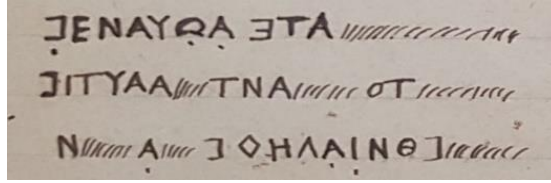 ]ΕΝΑΥΩ̣Α̣ ƎΤΑ
]ΙΤΥΑΑ ΤΝΑ ΟΤ
Ν Α̣ ] ΟΗΛΑΙ̣ΝΘ]